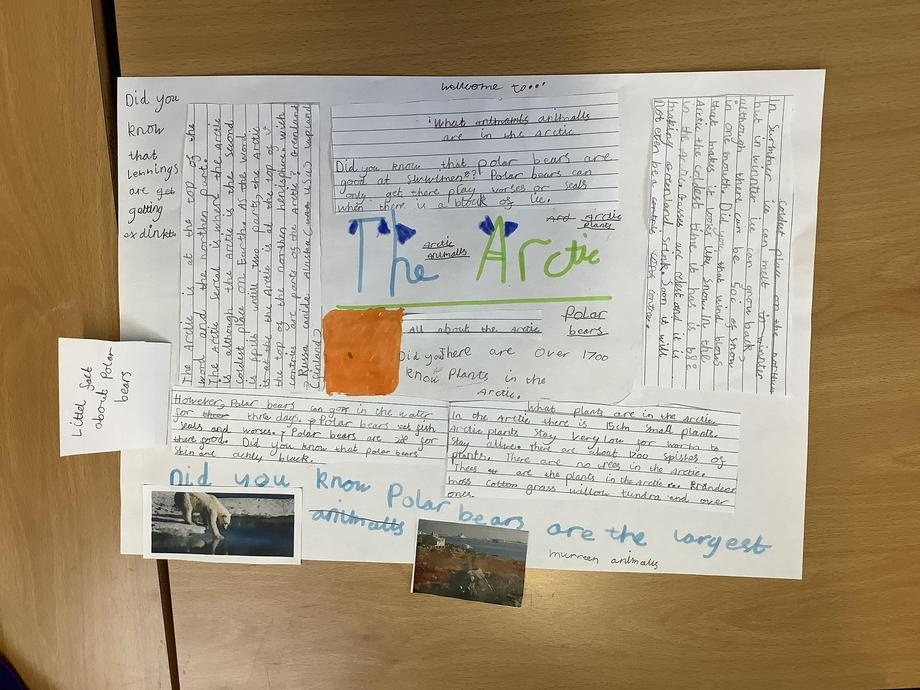 wellcome to...
Did you
know
that
Lemnings
are get
getting
exdinkts
The Arctic is at the top of the
word and the northen part.
The Arctic sercal is where the Arctic
is although the Arctic is the Second
coldest place on Earth. As the Word
is split will two parts, the Arctic
the Arctic is at the top of
the top of the northen hemisphere. with
contries are parts of the Arctic: Greenland
Russia canida Alaska USA Lapland
(finland)
What animalls
are in the arctic
Did you know that polar bears are
good at Swimming? Polar bears can
only get there play worses or seals
when there is a block of ice.
The Arctic
Arctic
animalls
And Arctic
plants
Polar
bears
All about the Arctic
Did you There are Over 1700
know Plants in the
Arctic.
coldest place on the
In Summer ice can melt in winter
but in wintter ice can grow back
although there can be 60c of snow
in one mounth. Did you that wind blows
that makes it looks like snow. In the
Arctic the coldest time it has is
making greenland, srink. Soon it will
Not even be a
Littel fact
about Polar
bears
However, Polar bears can go in the water
for three days. Polar bears eat fish
seals and worses. Polar bears are for
there good. Did you know that polar bears
skin are actely black.
What plants are in the Arctic
In the Arctic there is 15cm small plants.
Arctic plants Stay very low for warth to
Stay alive. there are about 1200 spishes of
plants. There are no trees in the Arctic.
Thees are the plants in the Arctic Raindeer
moss cotton grass willow tundra and over
ones.
Did you know Polar bears are the largest
animalls
murreen animalls